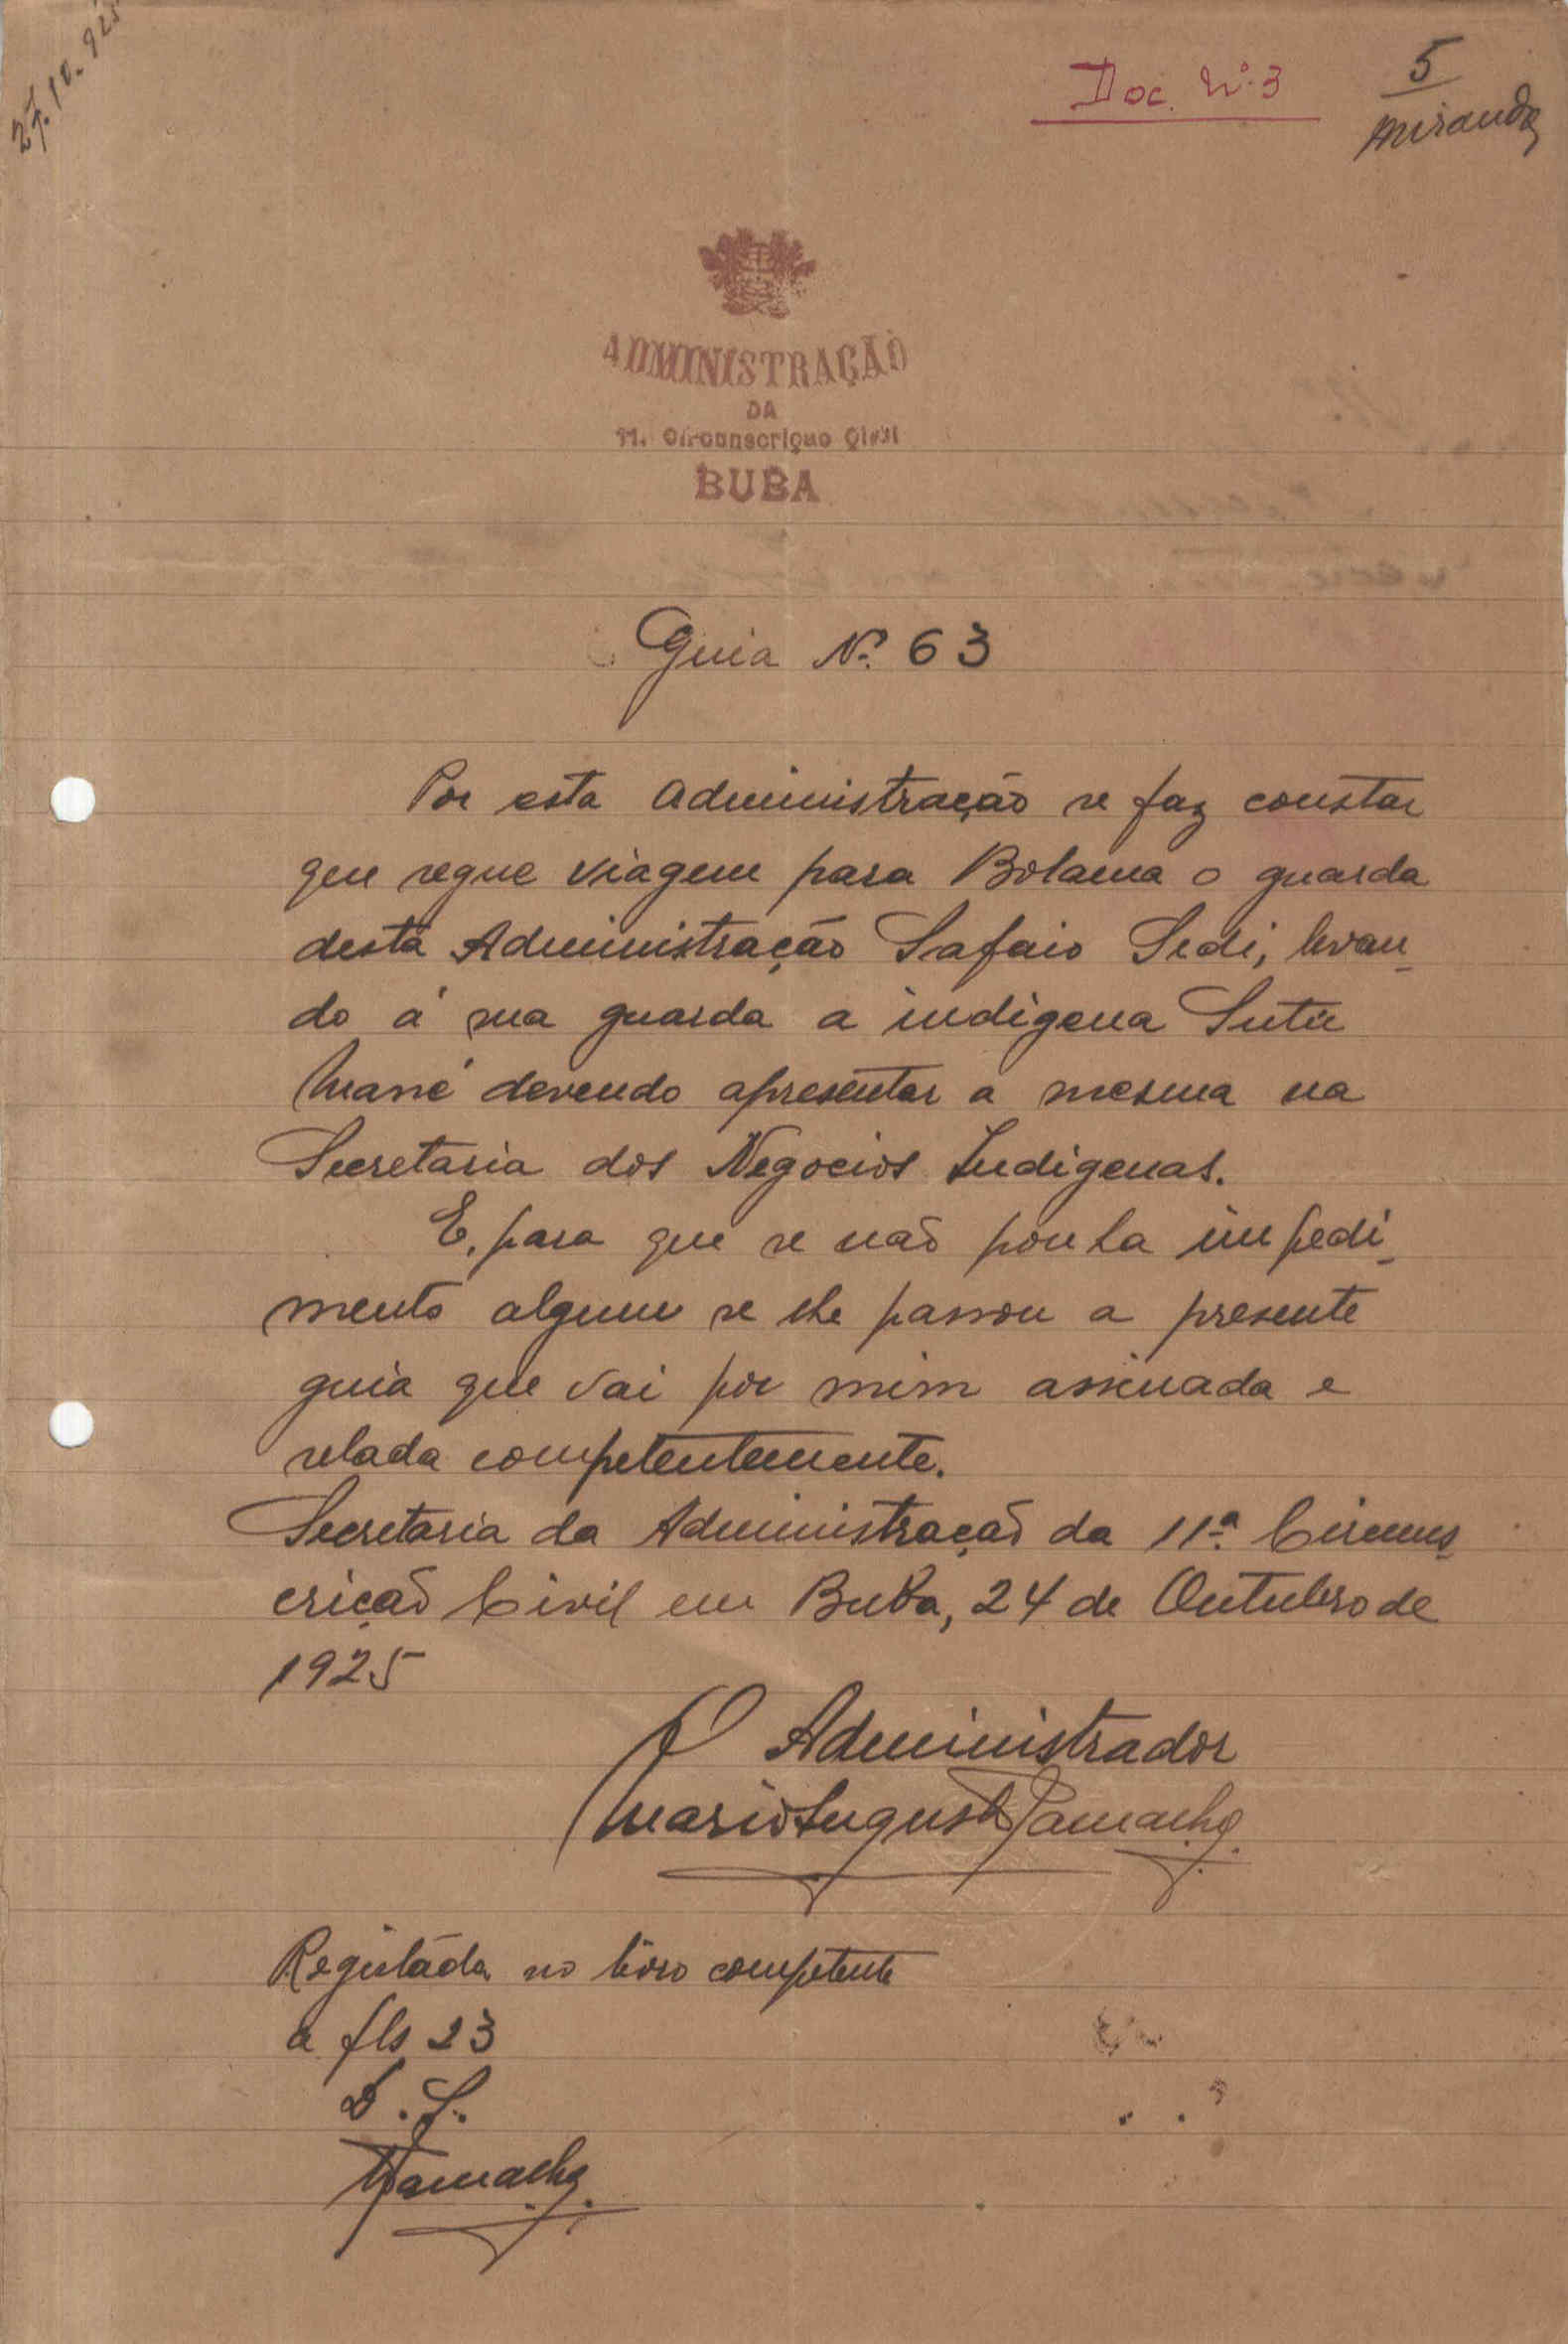 27.10.925
Doc. Nº 3
5
Miranda
ADMINISTRAÇÃO
DA
11. Circunscriçao Civil
BUBA
Guia Nº 63
Por esta Administração se faz constar
que segue viagem para Bolama o guarda
desta Administração Safaio Sedi, levan-
do á sua guarda a indigena Sutú
Mané devendo apresentar a mesma na
Secretaria dos Negocios Indigenas.
E, para que se não ponha impedi-
mento algum se lhe passou a presente
guia que vai por mim assinada e
selada competentemente.
Secretaria da Administração da 11ª Circuns-
crição Civil em Buba, 24 de Outubro de
1925
O Administrador
Mario Augusto Ramacho
Registáda no livro competente
a fls 23
D. S.
Ramacho